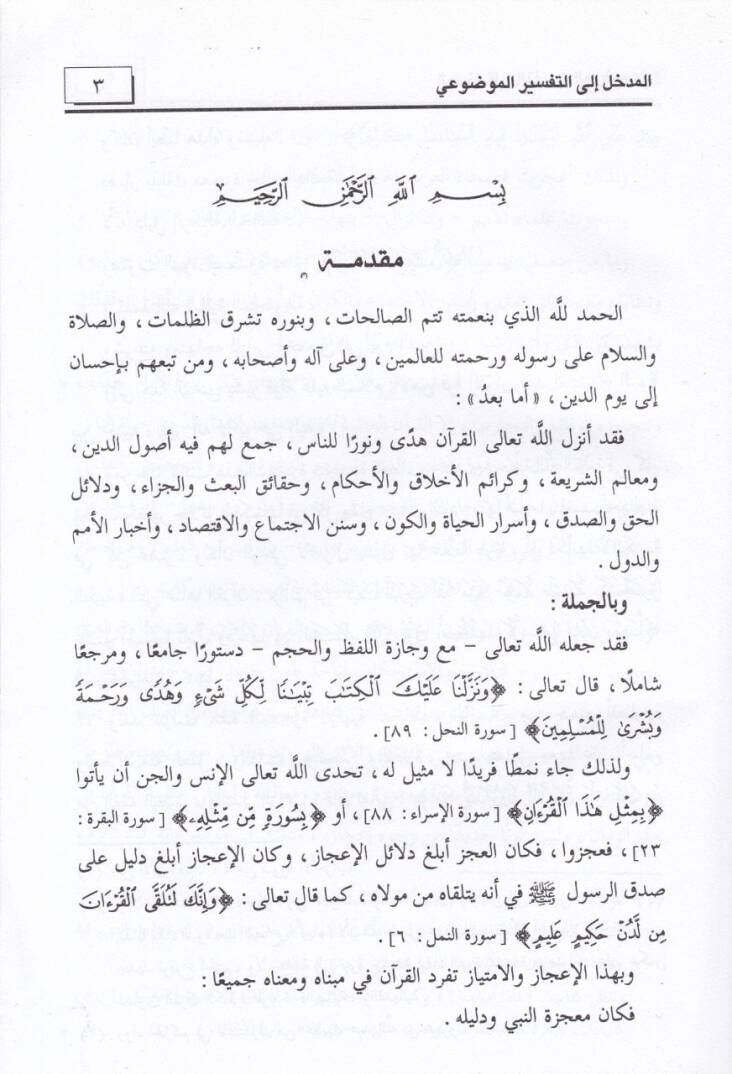 المدخل إلى التفسير الموضوعي
٣
بِسْمِ اللَّهِ الرَّحْمَنِ الرَّحِيمِ
مقدمــة
الحمد للَّه الذي بنعمته تتم الصالحات، وبنوره تشرق الظلمات، والصلاة
والسلام على رسوله ورحمته للعالمين، وعلى آله وأصحابه، ومن تبعهم بـإحسان
إلى يوم الدين، «أما بعدُ»:
فقد أنزل اللَّه تعالى القرآن هدًى ونورًا للناس، جمع لهم فيه أصول الدين،
ومعالم الشريعة، وكرائم الأخلاق والأحكام، وحقائق البعث والجزاء، ودلائل
الحق والصدق، وأسرار الحياة والكون، وسنن الاجتماع والاقتصاد، وأخبار الأمم
والدول.
وبالجملة:
فقد جعله اللَّه تعالى - مع وجازة اللفظ والحجم - دستورًا جامعًا، ومرجعًا
شاملًا، قال تعالى: ﴿وَنَزَّلْنَا عَلَيْكَ ٱلْكِتَٰبَ تِبْيَٰنًا لِّكُلِّ شَىْءٍ وَهُدًى وَرَحْمَةً
وَبُشْرَىٰ لِلْمُسْلِمِينَ﴾ [سورة النحل: ٨٩].
ولذلك جاء نمطًا فريدًا لا مثيل له، تحدى اللَّه تعالى الإنس والجن أن يأتوا
﴿بِمِثْلِ هَٰذَا ٱلْقُرْءَانِ﴾ [سورة الإسراء: ٨٨]، أو ﴿بِسُورَةٍ مِّن مِّثْلِهِۦ﴾ [سورة البقرة:
٢٣]، فعجزوا، فكان العجز أبلغ دلائل الإعجاز، وكان الإعجاز أبلغ دليل على
صدق الرسول ﷺ في أنه يتلقاه من مولاه، كما قال تعالى: ﴿وَإِنَّكَ لَتُلَقَّى ٱلْقُرْءَانَ
مِن لَّدُنْ حَكِيمٍ عَلِيمٍ﴾ [سورة النمل: ٦].
وبهذا الإعجاز والامتياز تفرد القرآن في مبناه ومعناه جميعًا:
فكان معجزة النبي ودليله.